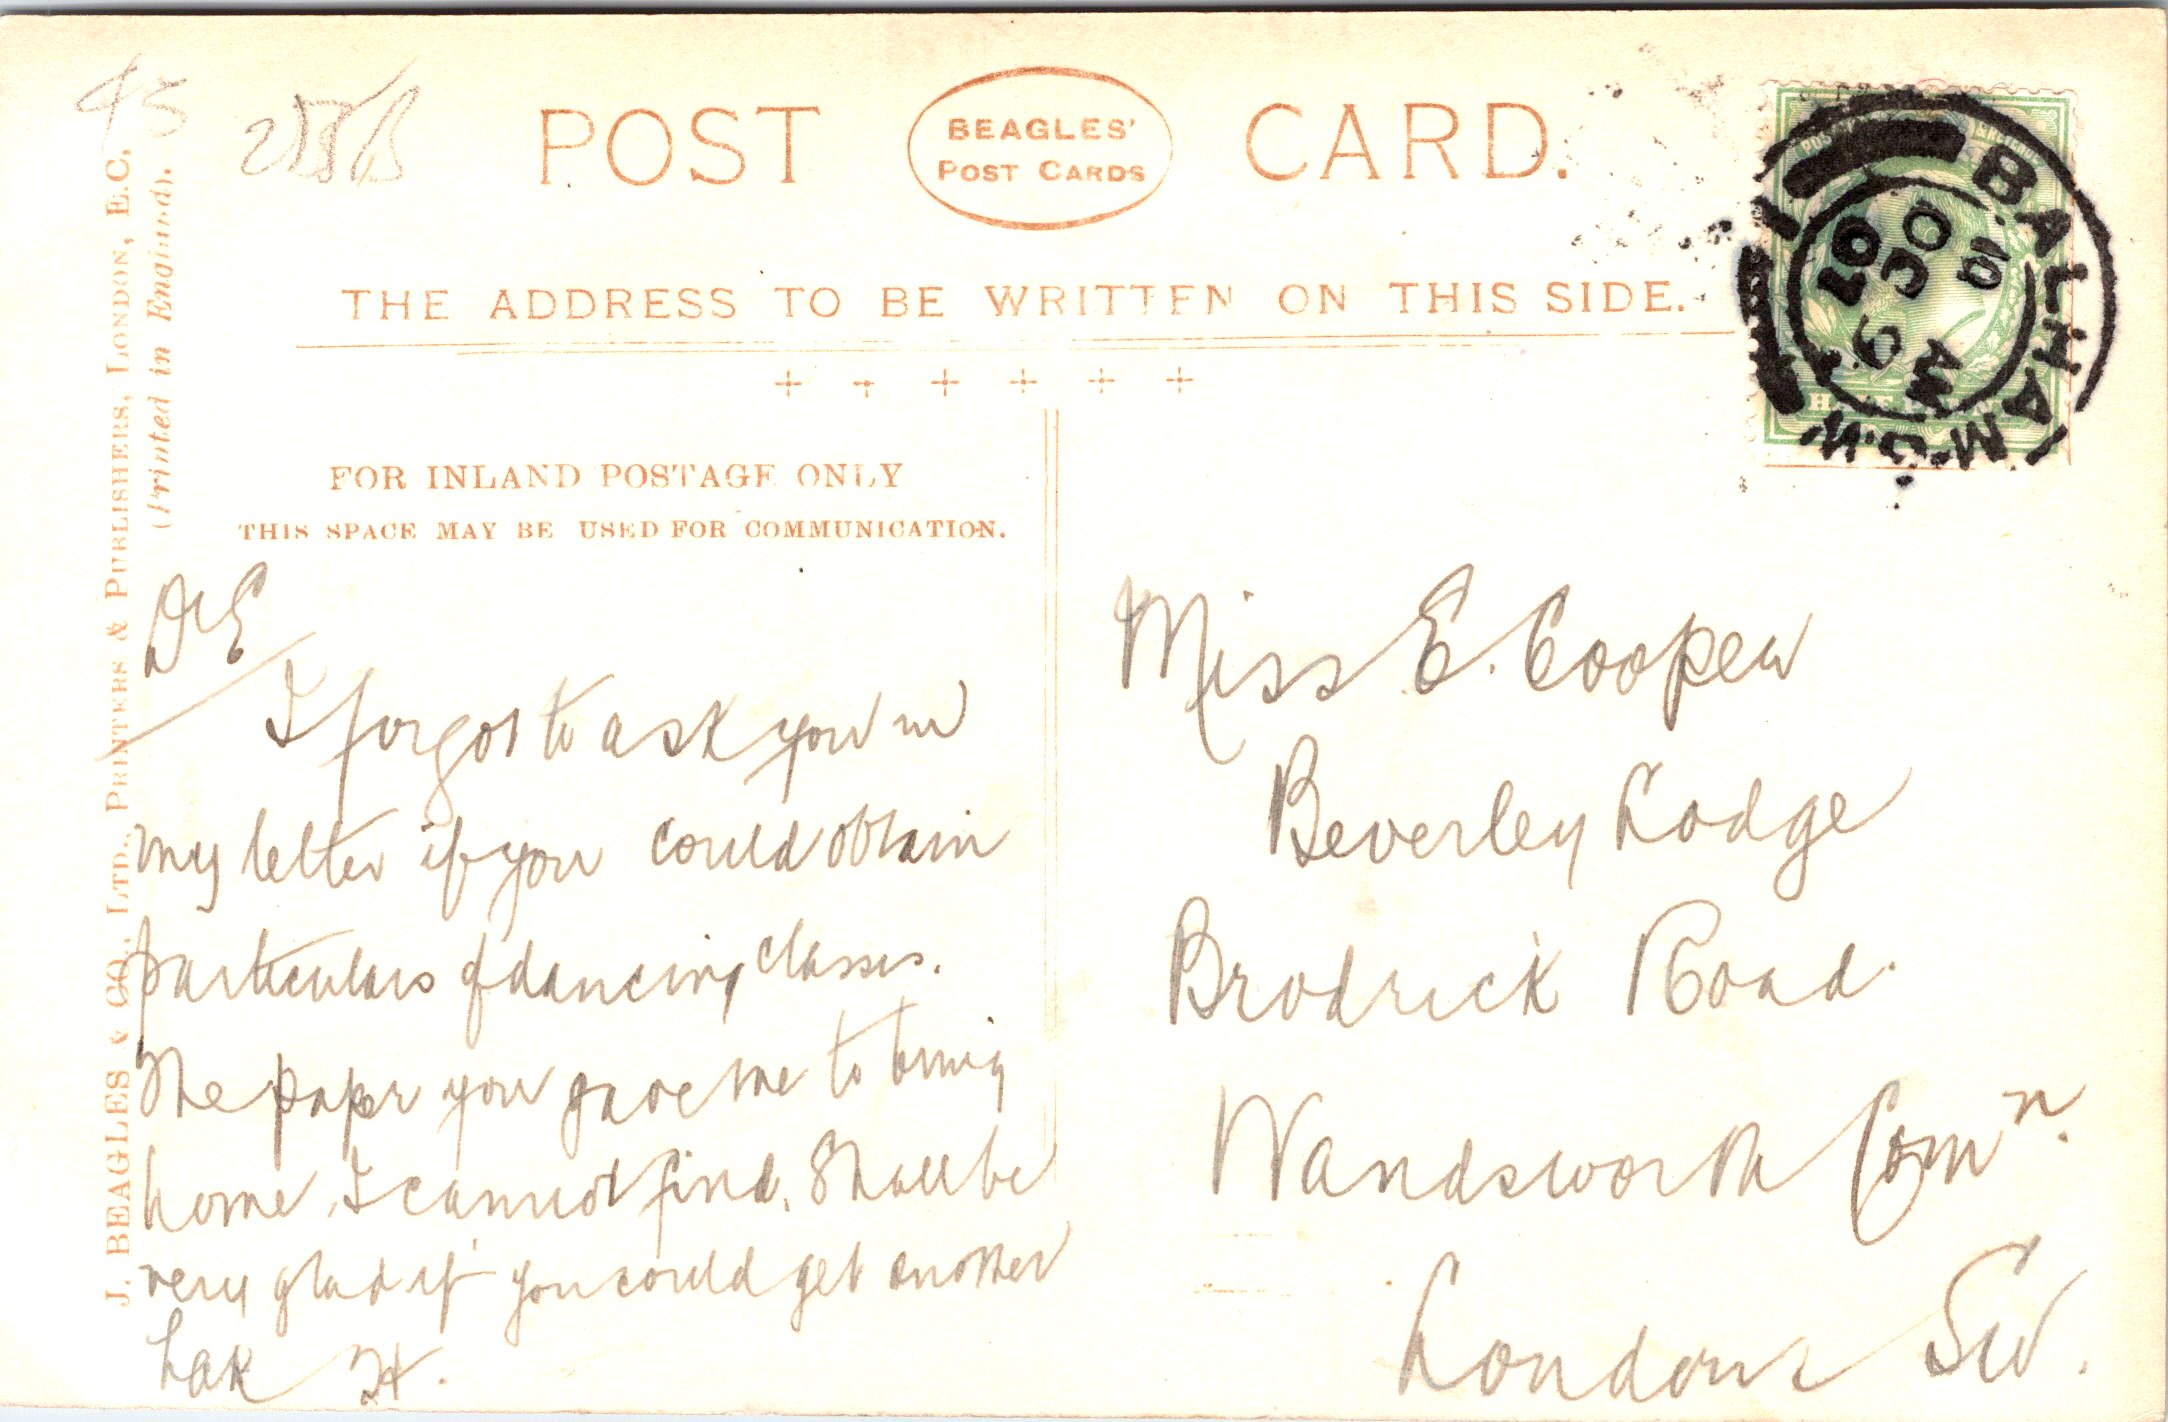 45
POST CARD.
BEAGLES'
POST CARDS
THE ADDRESS TO BE WRITTEN ON THIS SIDE.
FOR INLAND POSTAGE ONLY
THIS SPACE MAY BE USED FOR COMMUNICATION.
J. BEAGLES & CO., LTD., PRINTERS & PUBLISHERS, LONDON, E.C.
(Printed in England).
BALHAM S.W
OC 5
10
HALF PENNY
Dr E
I forgot to ask you in
my letter if you could obtain
particulars of dancing classes.
The paper you gave me to bring
home, I cannot find, Shall be
very glad if you could get another
H.
Miss E. Cooper
Beverley Lodge
Brodrick Road.
Wandsworth Comn.
London SW.